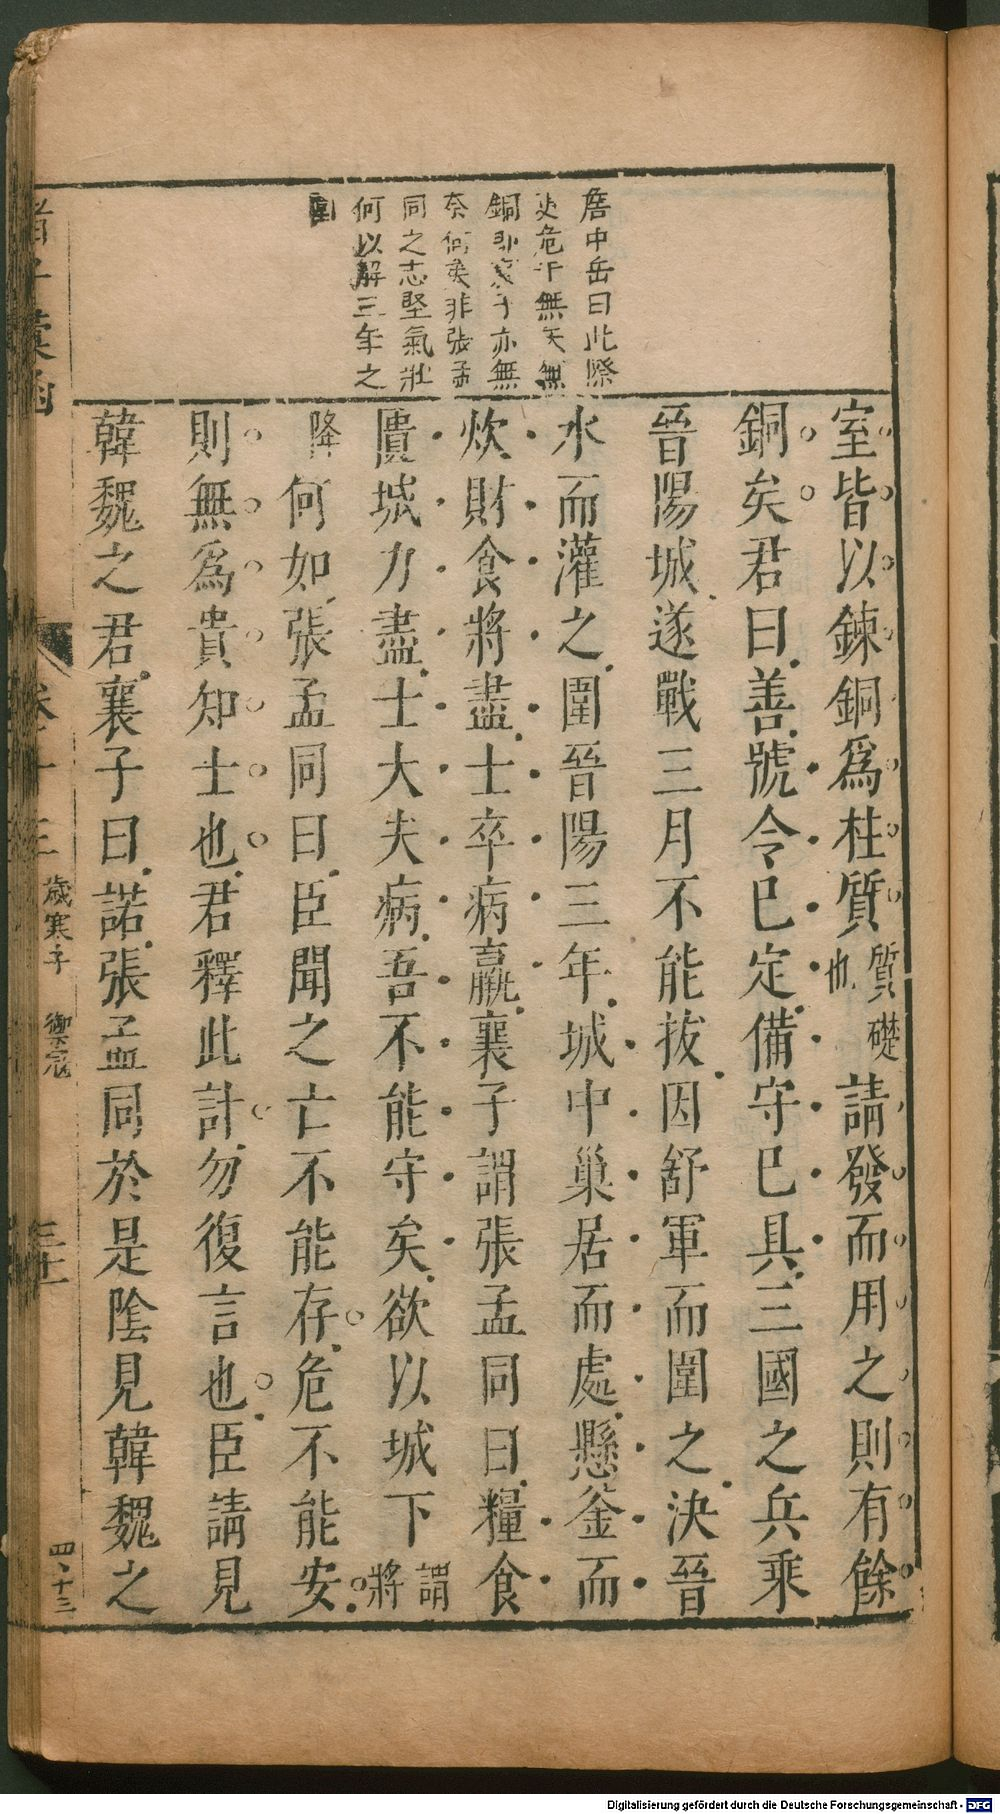 詹中岳曰此際
史危于無矢無
銅非襄子亦無
奈何矣非張孟
同之志堅氣壯
何以解三年之
圍
室皆以鍊銅爲柱質質礎也請發而用之則有餘
銅矣君曰善號令已定備守已具三國之兵乘
晉陽城遂戰三月不能拔因舒軍而圍之決晉
水而灌之圍晉陽三年城中巢居而處懸釜而
炊財食將盡士卒病羸襄子謂張孟同曰糧食
匱城力盡士大夫病吾不能守矣欲以城下謂將
降何如張孟同曰臣聞之亡不能存危不能安
則無爲貴知士也君釋此計勿復言也臣請見
韓魏之君襄子曰諾張孟同於是陰見韓魏之
諸子彙函
卷十三
歲寒子 御寇
三十一
四、十三
Digitalisierung gefördert durch die Deutsche Forschungsgemeinschaft - DFG